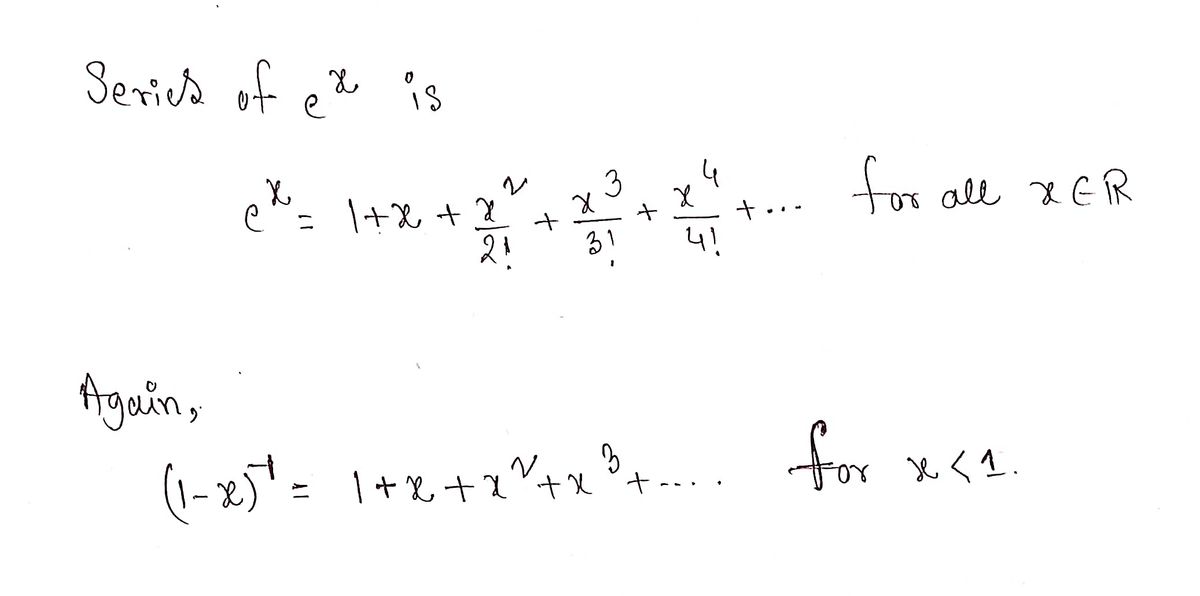 Series of e^x is
e^x = 1+x + x^2/2! + x^3/3! + x^4/4! + ... for all x ∈ ℝ
Again,
(1-x)^-1 = 1+x+x^2+x^3+.... for x<1.